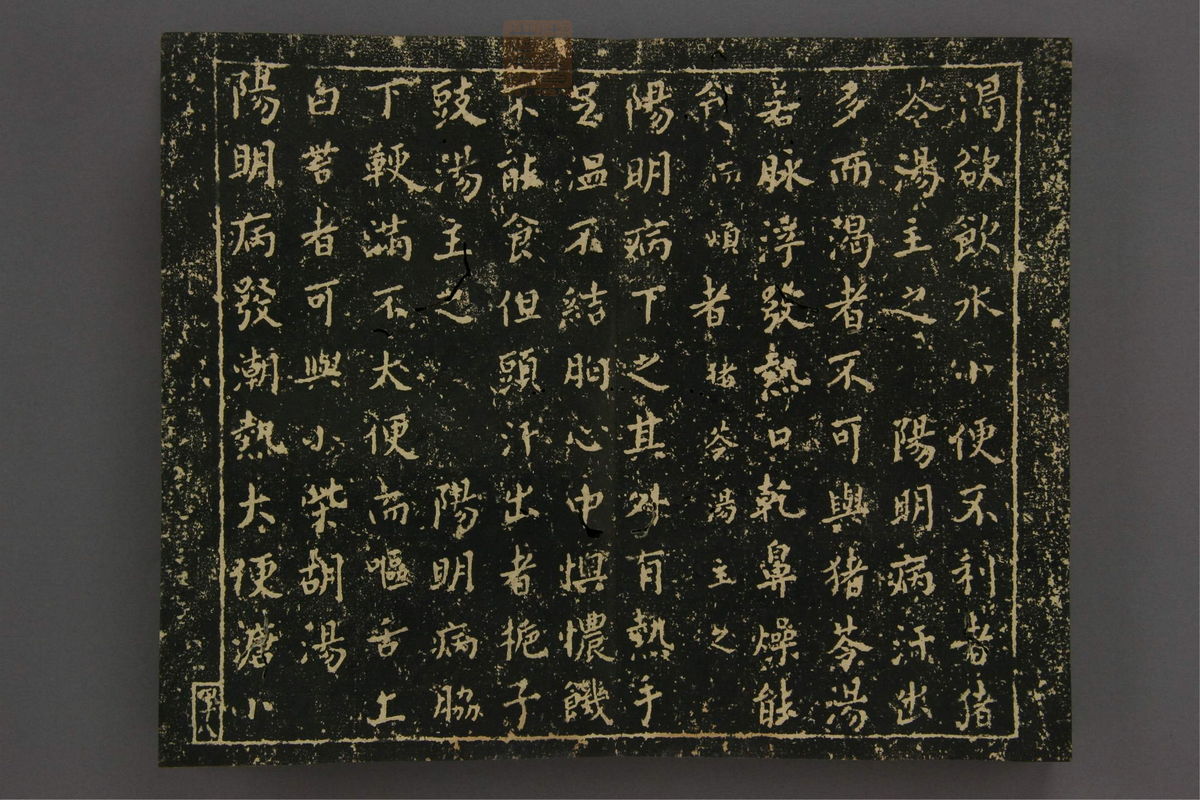 渴欲飲水小便不利者猪
苓湯主之　陽明病汗出
多而渴者不可與猪苓湯
若脉浮發熱口乾鼻燥能
食而煩者猪苓湯主之
陽明病下之其外有熱手
足温不結胸心中懊憹饑
不能食但頭汗出者栀子
豉湯主之　陽明病脇
下鞕滿不大便而嘔舌上
白苔者可與小柴胡湯
陽明病發潮熱大便溏小